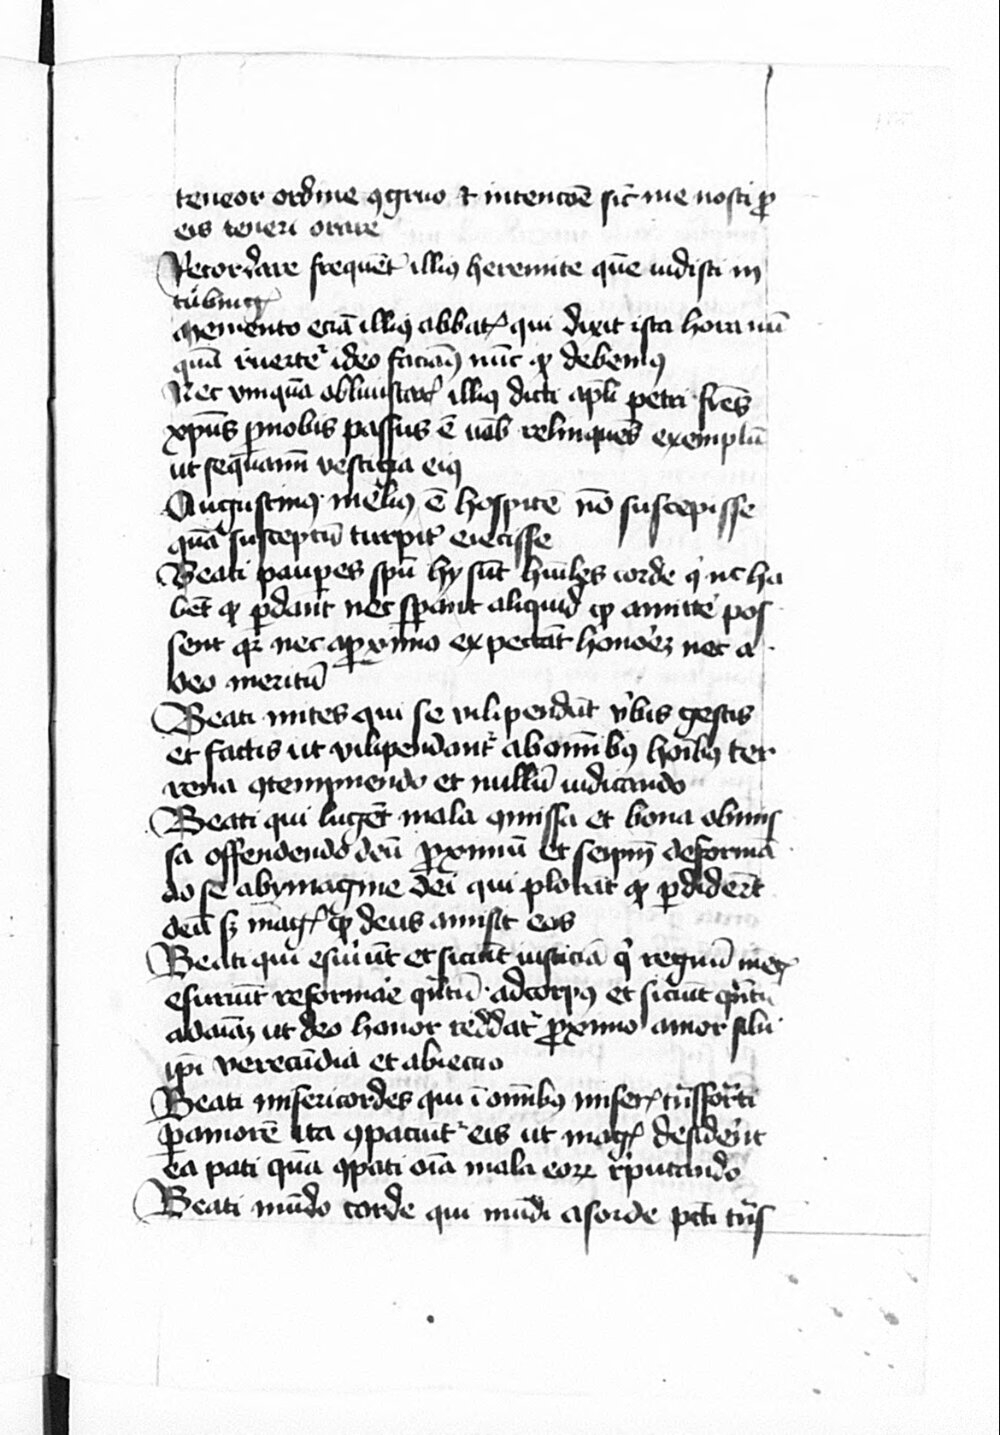 teneor ordine ꝯgruo et intencōe sic̄ me nosti ꝓ
eis teneri orare
Recordare frequēt illiꝰ heremite quē uidisti in
tüwinḡ
Memento eciā illiꝰ abbatꝭ qui dixit ista hora nū
quā reuertet᷑ ideo faciaꝰ nūc ꝙ debemꝰ
Nec vnquā obliuiscar illiꝰ dicti apl̄i petri fr̄es
xp̄us ꝓ nobis passus ē uob̄ relinquēs exemplū
ut sequamī vestigia eiꝰ
Augustinꝰ meliꝰ ē hospitē nō suscepisse
quā susceptū turpit᷑ eiecisse
Beati pauꝑes spū hy sūt hūiles corde qͥ nc ha
bēt ꝙ ꝑdant nec sperāt aliquid ꝙ amitte᷑ pos
sent qꝛ nec a ꝓximo expectāt honorē nec a
deo meritū
Beati mites qui se vilipendūt v̓bis gestis
et factis ut vilipendant᷑ ab omībꝰ hoībꝰ ter
rena ꝯtempnendo et nullū iudicando
Beati qui lugēt mala ꝯmissa et bona obmis
sa offendendo deū ꝓximū et seip̄m deformā
do se ab ymagine dei qui plorāt ꝙ ꝑdiderūt
deū sꝫ magꝭ ꝙ deus amisit eos
Beati qui esuriūt et siciūt iusticiā qͥ regnū meꝭ
esuriūt reformare qͣntū ad corpꝰ et siciūt qͣntū
ad aīaꝫ ut deo honor reddat᷑ ꝓximo amor sibi
ip̄i verecūdia et abiectio
Beati misericordes qui ī omībꝰ miserꝭ tn̄sforͣti
ꝑ amorē ita ꝯpaciūt᷑ eis ut magꝭ desiderēt
ea pati quā ꝯpati oīa mala eoꝝ reputando
Beati mūdo corde qui mūdi a sorde pcti tn̄s